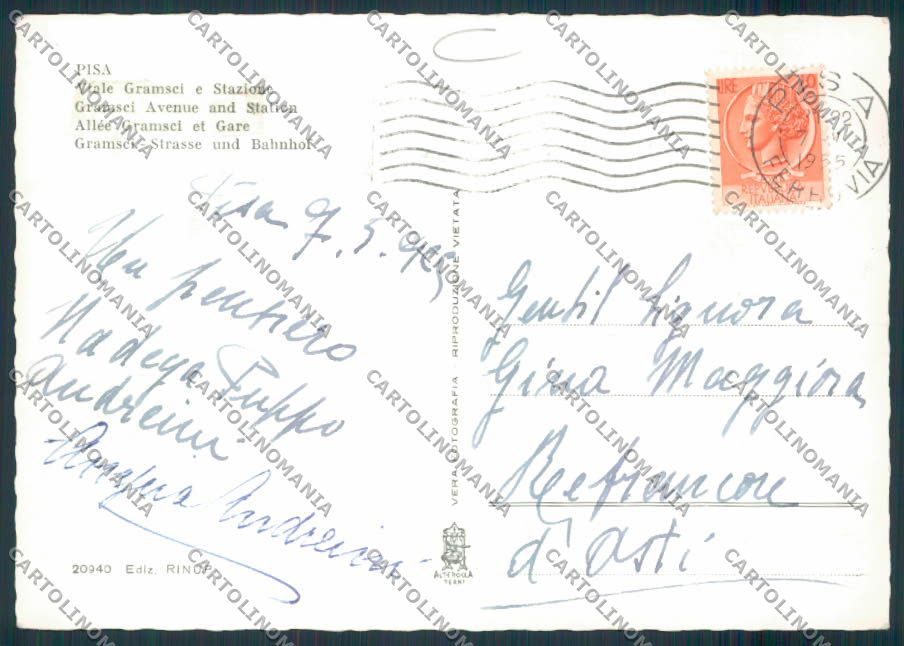 PISA
Viale Gramsci e Stazione
Gramsci Avenue and Station
Allée Gramsci et Gare
Gramsci Strasse und Bahnhof
Pisa 7.5.955
Un pensiero
Nadega Puppo
Andreini
Andreini
20940 Ediz. RINOF
VERA FOTOGRAFIA - RIPRODUZIONE VIETATA
ALTEROCCA
TERNI
LIRE
REPUBBLICA
ITALIANA
PISA
1955
FERROVIA
Gentil Signora
Gina Maggiora
Refrancore
d'Asti
CARTOLINOMANIA